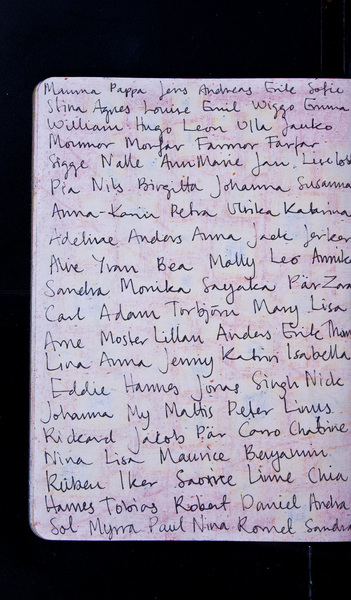 Mamma Pappa Jens Andreas Erik Sofie
Stina Agnes Louise Emil Wiggo Emma
William Hugo Leon Ulla Jauko
Mormor Morfar Farmor Farfar
Sigge Nalle AnnMarie Jan
Pia Nils Birgitta Johanna Susanna
Anna-Karin Petra Ulrika Katarina
Adeline Anders Anna Jack Jerker
Alve Yran Bea Molly Leo Annik
Sandra Monika Sayaka Pär Zara
Carl Adam Torbjörn Mary Lisa
Arne Moster Lillan Anders Erik
Lina Anna Jenny Katrin Isabella
Eddie Hannes Jonas Singh Nick
Johanna My Mattis Peter Linus
Rickard Jacob Pär Carro
Nina Lisa Maurice Benjamin
Ruben Iker Saoirse Linne Chia
Hannes Tobias Robert Daniel Andra
Sol Myrra Paul Nina Romel Sandra